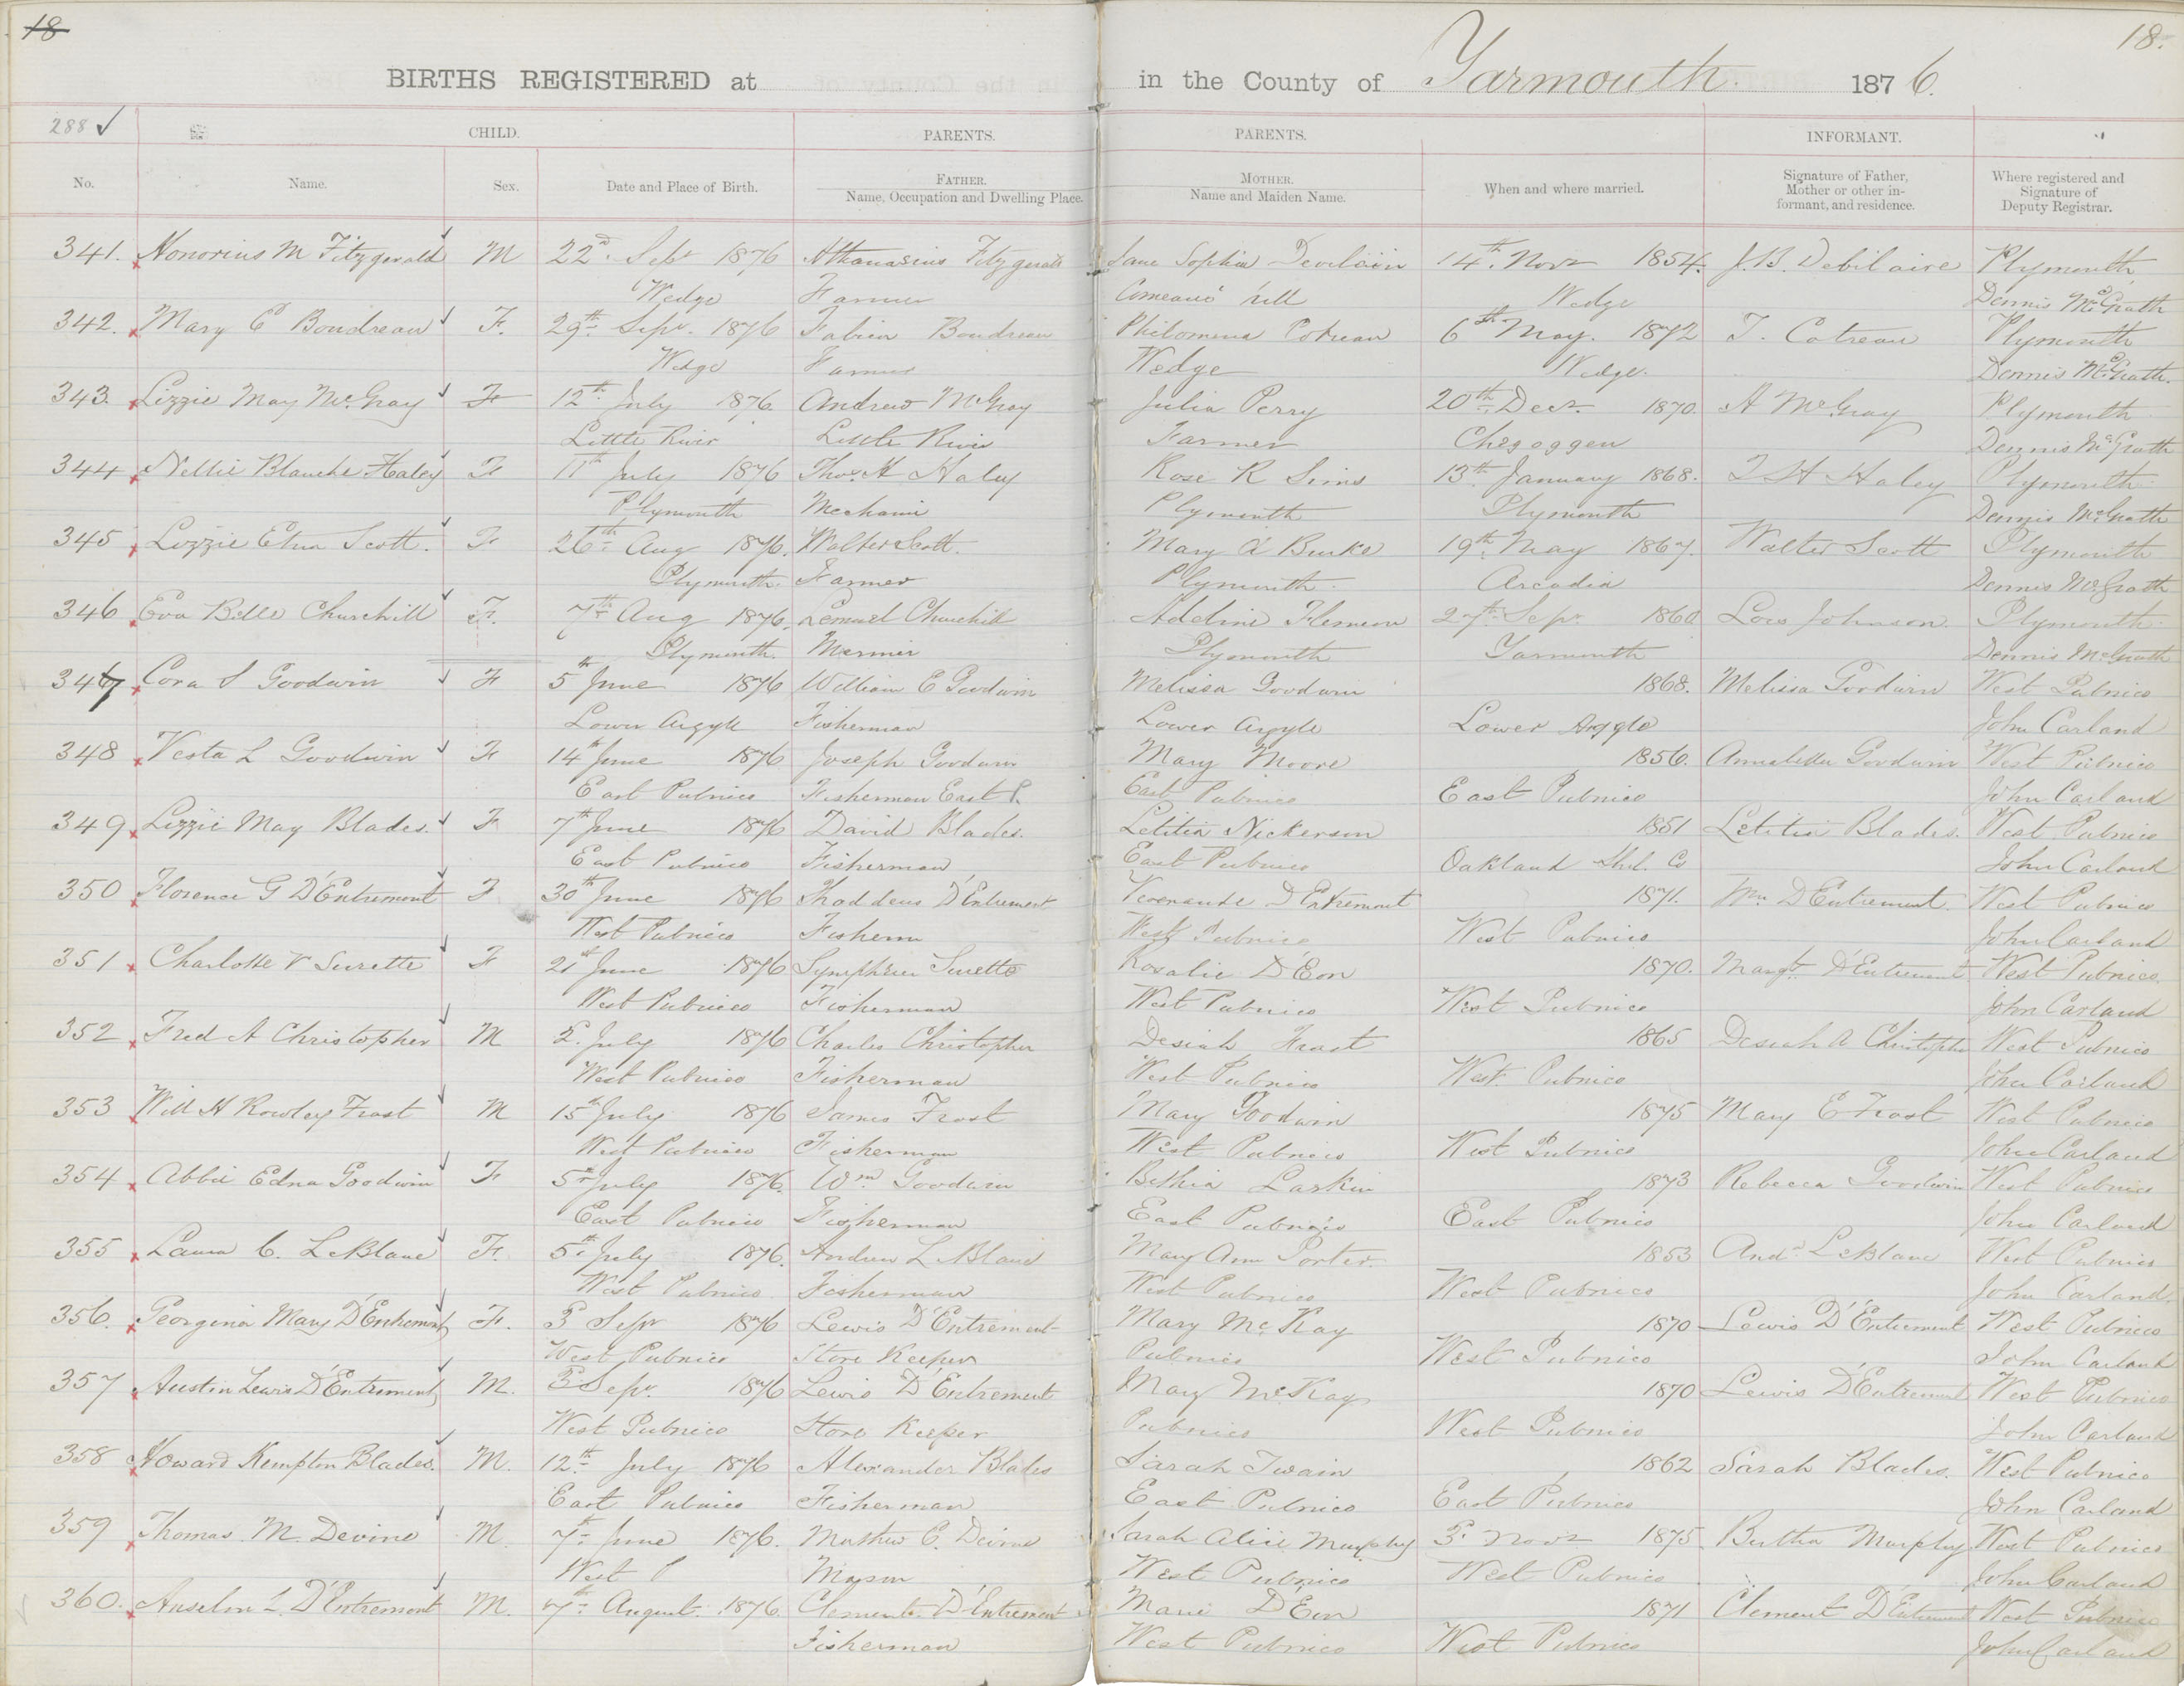 18
18.
BIRTHS REGISTERED at in the County of Yarmouth. 1876.
288 ✓ CHILD. PARENTS. PARENTS. INFORMANT.
No. Name. Sex. Date and Place of Birth. FATHER. Name, Occupation and Dwelling Place. MOTHER. Name and Maiden Name. When and where married. Signature of Father, Mother or other informant, and residence. Where registered and Signature of Deputy Registrar.
341. Honorius M Fitzgerald M 22d Sepr 1876 Athanasius Fitzgerald Jane Sophia 14th Novr 1854. J.B. Plymouth
Wedge Farmer Comeau's hill Wedge Dennis McGrath
342. Mary E Boudreau F. 29th Sepr. 1876 Fabien Boudreau Philomena Cotreau 6th May. 1872 T. Cotreau Plymouth
Wedge Farmer Wedge Wedge. Dennis McGrath.
343. Lizzie May McGray F 12th July 1876. Andrew McGray Julia Perry 20th Decr. 1870. A McGray Plymouth
Little River Little River Farmer Chegoggen Dennis McGrath
344 Nellie Blanche Haley F 11th July 1876 Thos. H Haley Rose R Sims 13th January 1868. T H Haley Plymouth
Plymouth Mechanic Plymouth Plymouth Dennis McGrath
345 Lizzie Etna Scott. F 26th Aug 1876. Walter Scott. Mary A Burke 19th May 1867. Walter Scott Plymouth
Plymouth. Farmer Plymouth. Arcadia Dennis McGrath
346 Eva Belle Churchill F. 7th Aug 1876. Lemuel Churchill Adeline 27th Sepr. 1860 Johnson. Plymouth.
Plymouth. Mariner Plymouth Yarmouth Dennis McGrath
347 Cora S Goodwin F 5th June 1876 William E Goodwin Melissa Goodwin 1868. Melissa Goodwin West Pubnico
Lower Argyle Fisherman Lower Argyle Lower Argyle John Carland
348 Vesta L Goodwin F 14th June 1876 Joseph Goodwin Mary Moore 1856. Goodwin West Pubnico
East Pubnico Fisherman East P. East Pubnico East Pubnico John Carland
349. Lizzie May Blades. F 7th June 1876 David Blades. Letitia Nickerson 1851 Letitia Blades. West Pubnico
East Pubnico Fisherman East Pubnico Oakland Shel. Co John Carland
350 Florence G D'Entremont F 30th June 1876 Thaddeus D'Entremont D'Entremont 1871. Wm D'Entremont. West Pubnico
West Pubnico Fisherm West Pubnico West Pubnico John Carland
351 Charlotte V Surette F 21st June 1876 Surette Rosalie D'Eon 1870. Margt. D'Entremont West Pubnico
West Pubnico Fisherman West Pubnico West Pubnico John Carland
352 Fred A Christopher M 2. July 1876 Charles Christopher Desiah Frost 1865 Desiah A Christopher West Pubnico
West Pubnico Fisherman West Pubnico West Pubnico John Carland
353 Will H Rowley Frost M 15th July 1876 James Frost Mary Goodwin 1875 Mary E Frost West Pubnico
West Pubnico Fisherman West Pubnico West Pubnico John Carland
354 Abbie Edna Goodwin F 5th July 1876. Wm Goodwin Bethia Larkin 1873 Rebecca Goodwin West Pubnico
East Pubnico Fisherman East Pubnico East Pubnico John Carland
355 Laura C. LeBlanc F. 5th July 1876. Andrew LeBlanc Mary Ann Porter 1853 Andw LeBlanc West Pubnico
West Pubnico. Fisherman West Pubnico West Pubnico John Carland.
356. Georgina Mary D'Entremont F. 3 Sepr 1876 Lewis D'Entremont Mary McKay 1870 Lewis D'Entremont West Pubnico
West Pubnico Store Keeper Pubnico West Pubnico John Carland
357 Austin Lewis D'Entremont M. 3 Sepr. 1876 Lewis D'Entremont Mary McKay 1870 Lewis D'Entremont West Pubnico
West Pubnico Store Keeper Pubnico West Pubnico John Carland
358 Howard Kempton Blades. M. 12th July 1876 Alexander Blades Sarah Swain 1862 Sarah Blades. West Pubnico
East Pubnico Fisherman East Pubnico East Pubnico John Carland
359 Thomas. M. Devine M. 7th June 1876. Mathew C. Devine Sarah Alice Murphy 3. Novr 1875. Bertha Murphy West Pubnico
West P Mason West Pubnico West Pubnico John Carland
360. Anselm L. D'Entremont M. 7th August. 1876. Clement D'Entremont Marie D'Eon 1871 Clement D'Entremont West Pubnico
Fisherman West Pubnico West Pubnico John Carland